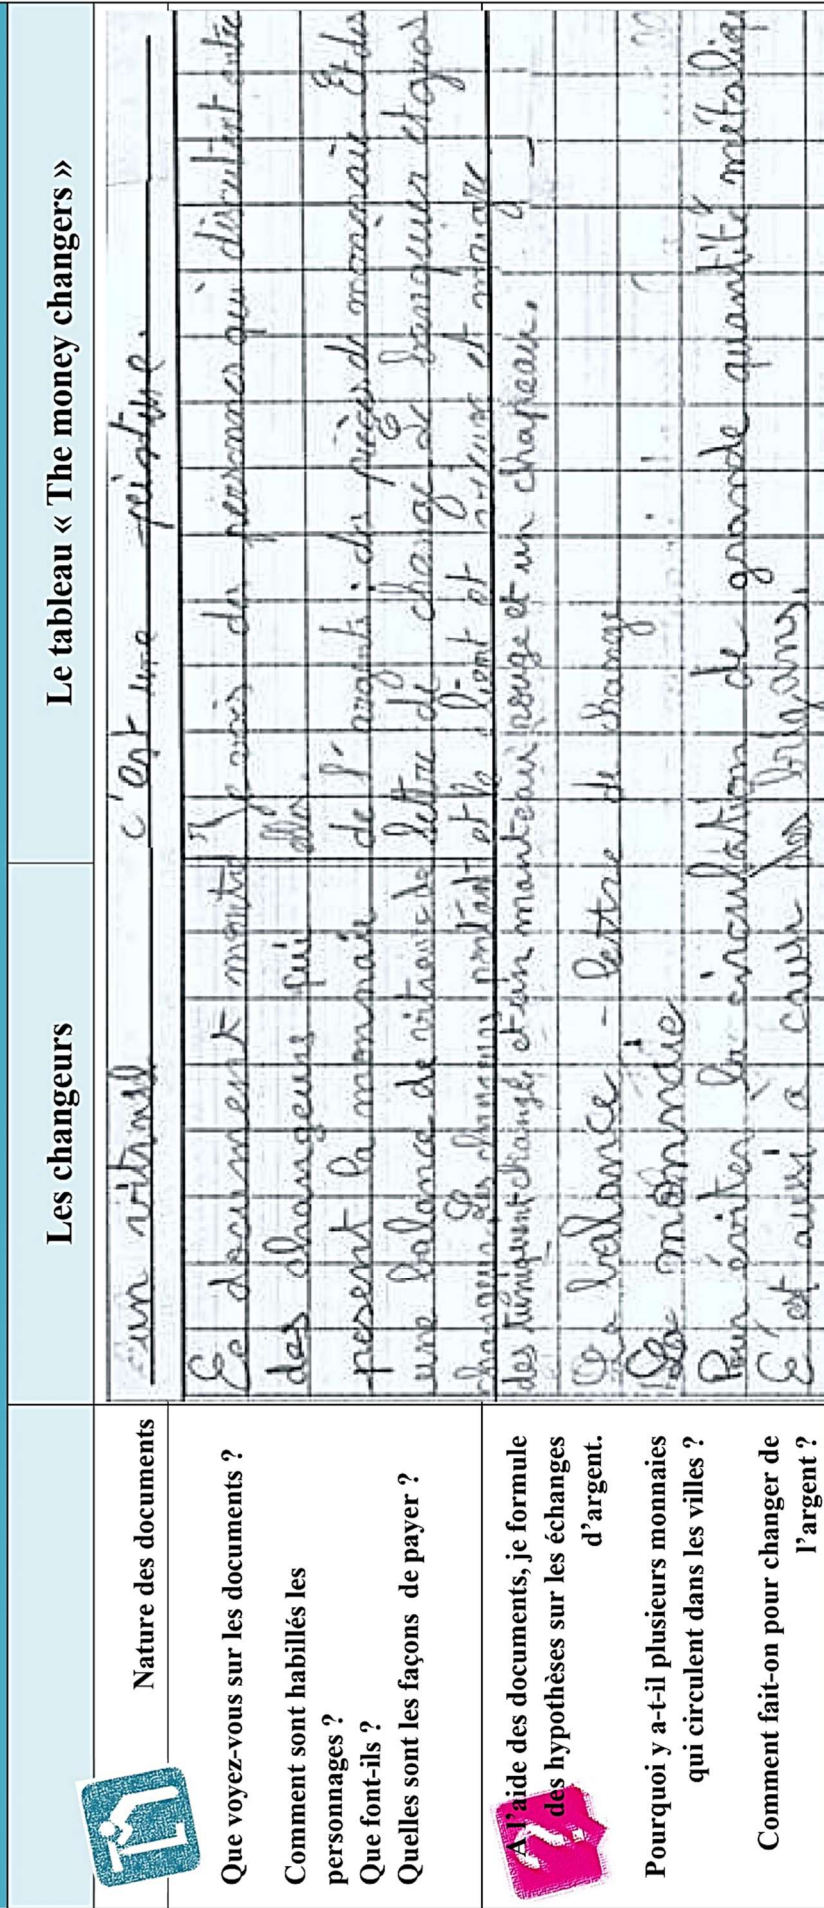 Les changeurs
Le tableau « The money changers »
Nature des documents
un vitrail
c'est une peinture.
Que voyez-vous sur les documents ?
Comment sont habillés les
personnages ?
Que font-ils ?
Quelles sont les façons de payer ?
Ce document montre
des changeurs qui
pèsent la monnaie
une balance de vitraux de
Je vois des personnes qui discutent entre
elles.
de l'argent : des pièces de monnaie. Et des
lettre de change. Le banquier et gros
changeur. Les changeurs portant et le client et et maigre
des tuniquent changle et un manteau rouge et un chapeau.
A l'aide des documents, je formule
des hypothèses sur les échanges
d'argent.
Pourquoi y a-t-il plusieurs monnaies
qui circulent dans les villes ?
Comment fait-on pour changer de
l'argent ?
La balance - lettre de change
La monnaie
Pour éviter la circulation de grande quantité métaliq
C'est aussi à causse des brigans.